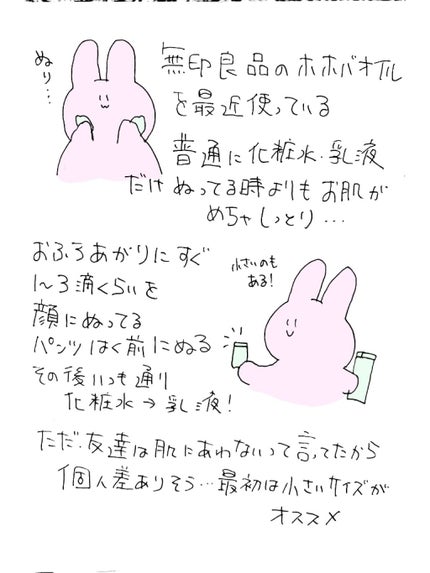 ぬり…
無印良品のホホバオイル
を最近使っている
普通に化粧水・乳液
だけぬってる時よりもお肌が
めちゃしっとり…
おふろあがりにすぐ
1〜3滴くらいを
顔にぬってる
パンツはく前にぬる
その後いつも通り
化粧水→乳液!
小さいのも
ある!
ただ・友達は肌にあわないって言ってたから
個人差ありそう…最初は小さいサイズが
オススメ